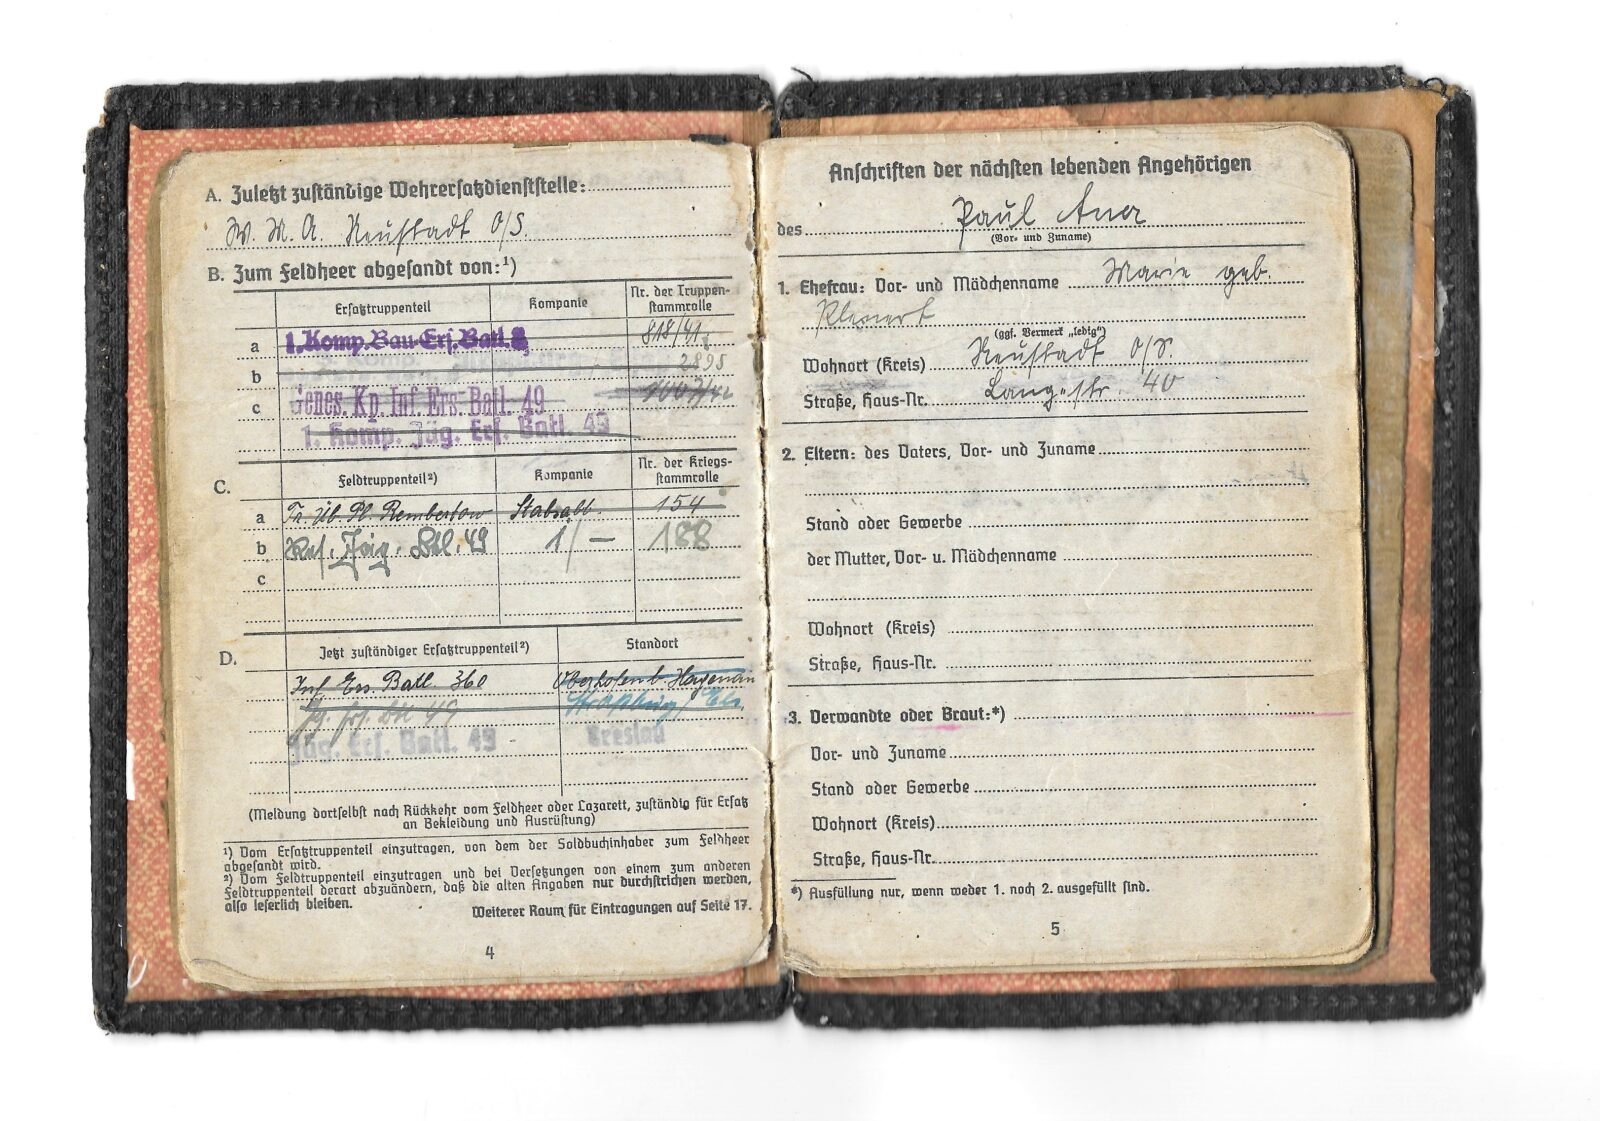 A. Zuletzt zuständige Wehrersatzdienststelle:
W. M. A. Neustadt O/S.
B. Zum Feldheer abgesandt von:¹)
Ersatztruppenteil Kompanie Nr. der Truppenstammrolle
a 1. Komp. Bau-Ers. Batl. 8 818/41
b 2895
c Genes. Kp. Inf. Ers. Batl. 49
1. Komp. Jäg. Ers. Batl. 49
C. Feldtruppenteil²) Kompanie Nr. der Kriegsstammrolle
a Tr. Üb. Pl. Rembertow Stabsabt. 154
b Res. Jäg. Btl. 49 1/– 188
c
D. Jetzt zuständiger Ersatztruppenteil²) Standort
Inf. Ers. Batl. 360 b. Hagenau
Jg. Ers. Btl 49 Straßburg, Els.
Jäg. Ers. Batl. 49 Breslau
(Meldung dortselbst nach Rückkehr vom Feldheer oder Lazarett, zuständig für Ersatz
an Bekleidung und Ausrüstung)
¹) Vom Ersatztruppenteil einzutragen, von dem der Soldbuchinhaber zum Feldheer
abgesandt wird.
²) Vom Feldtruppenteil einzutragen und bei Versetzungen von einem zum anderen
Feldtruppenteil derart abzuändern, daß die alten Angaben nur durchstrichen werden,
also leserlich bleiben.
Weiterer Raum für Eintragungen auf Seite 17.
4
Anschriften der nächsten lebenden Angehörigen
des Paul
(Vor- und Zuname)
1. Ehefrau: Vor- und Mädchenname Marie geb.
(ggf. Vermerk „ledig")
Wohnort (Kreis) Neustadt O/S.
Straße, Haus-Nr. Lang-str. 40
2. Eltern: des Vaters, Vor- und Zuname
Stand oder Gewerbe
der Mutter, Vor- u. Mädchenname
Wohnort (Kreis)
Straße, Haus-Nr.
3. Verwandte oder Braut:*)
Vor- und Zuname
Stand oder Gewerbe
Wohnort (Kreis)
Straße, Haus-Nr.
*) Ausfüllung nur, wenn weder 1. noch 2. ausgefüllt sind.
5